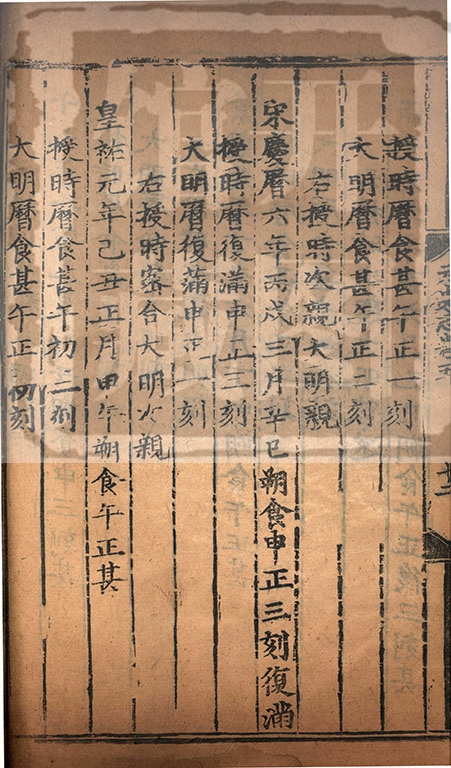 授時曆食甚午正一刻
大明曆食甚午正三刻
右授時次親大明親
宋慶曆六年丙戌三月辛巳朔食申正三刻復滿
授時曆復滿申正三刻
大明曆復滿申正一刻
右授時密合大明次親
皇祐元年己丑正月甲午朔食午正甚
授時曆食甚午初二刻
大明曆食甚午正初刻